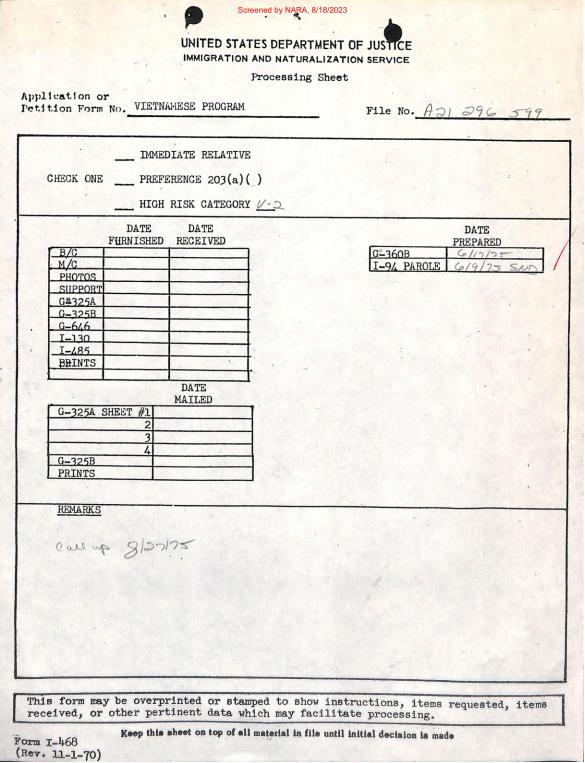 Screened by NARA, 8/18/2023
UNITED STATES DEPARTMENT OF JUSTICE
IMMIGRATION AND NATURALIZATION SERVICE
Processing Sheet
Application or
Petition Form No. VIETNAMESE PROGRAM
File No. A21 296 599
___ IMMEDIATE RELATIVE
CHECK ONE ___ PREFERENCE 203(a)( )
___ HIGH RISK CATEGORY V-2
DATE FURNISHED DATE RECEIVED
B/C
M/C
PHOTOS
SUPPORT
G#325A
G-325B
G-646
I-130
I-485
PRINTS
DATE PREPARED
G-360B 6/17/75
I-94 PAROLE 6/9/75 SND
DATE MAILED
G-325A SHEET #1
2
3
4
G-325B
PRINTS
REMARKS
Call up 8/27/75
This form may be overprinted or stamped to show instructions, items requested, items
received, or other pertinent data which may facilitate processing.
Keep this sheet on top of all material in file until initial decision is made
Form I-468
(Rev. 11-1-70)